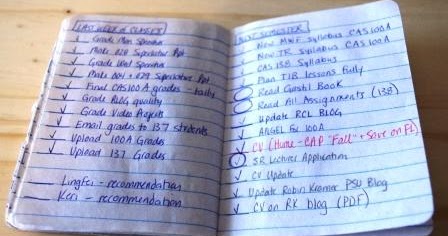 LAST WEEK of CLASSES
Grade Mon Speeches
Make 028 Superlative Ppt
Grade Wed Speeches
Make 001 + 029 Superlative Ppt
Final CAS100A grades - tally
Grade BLOG quality
Grade Video Projects
Email grades to 137 students
Upload 100A Grades
Upload 137 Grades
Lingfei - recommendation
Keri - recommendation
NEXT SEMESTER
New MWF Syllabus CAS100A
New TR Syllabus CAS100A
CAS138 Syllabus
Plan TIB lessons fully
Read Gastil Book
Read All Assignments (138)
Update RCL BLOG
ANGEL for 100A
CV (Hume - CAP "Fall" + Save on FL)
SR Lecturer Application
CV Update
Update Robin Kramer PSU Blog
CV on RK blog (PDF)